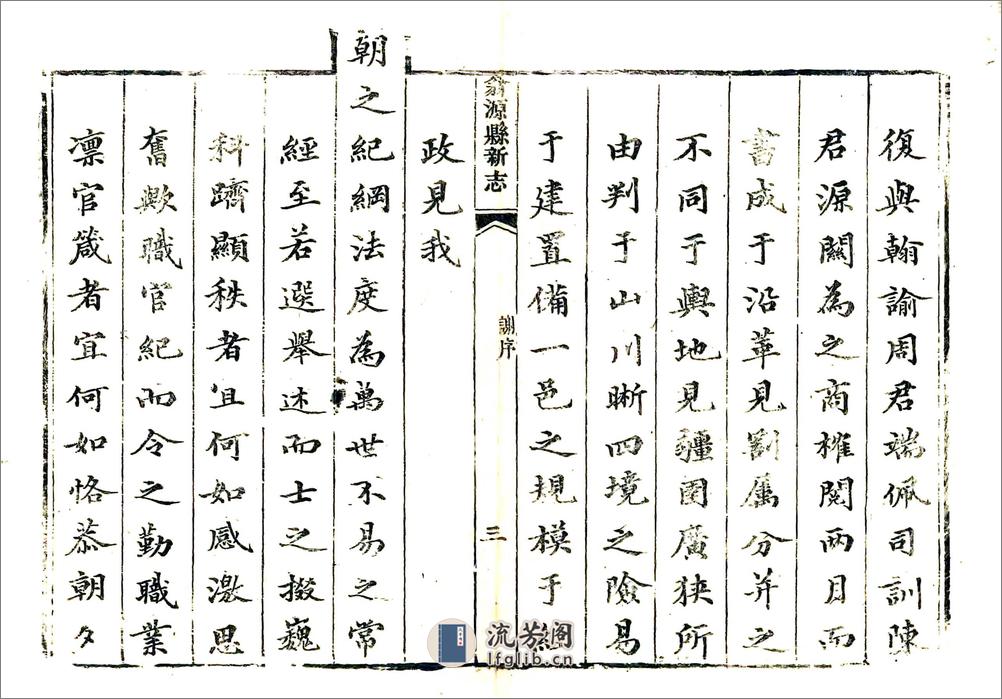 復與翰諭周君端佩司訓陳
君源闢為之商榷閱兩月而
書成于沿革見割屬分并之
不同于輿地見疆圉廣狹所
由判于山川晰四境之險易
于建置備一邑之規模于
翁源縣新志
謝序
三
政見我
朝之紀綱法度為萬世不易之常
經至若選舉述而士之掇巍
科躋顯秩者宜何如感激思
奮歟職官紀而令之勤職業
凜官箴者宜何如恪恭朝夕
流芳阁
lfglib.cn